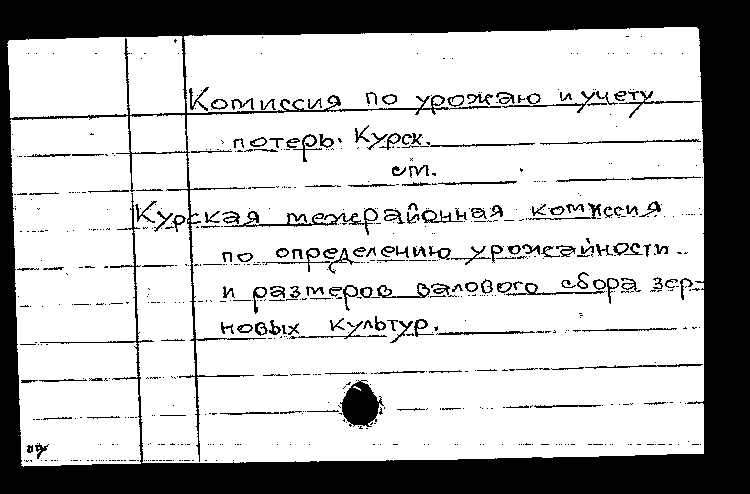 Комиссия по урожаю и учету
потерь. Курск.
см.
Курская межрайонная комиссия
по определению урожайности
и размеров валового сбора зер-
новых культур.